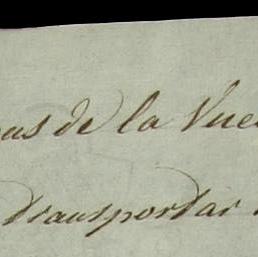 as de la Vue
transportar